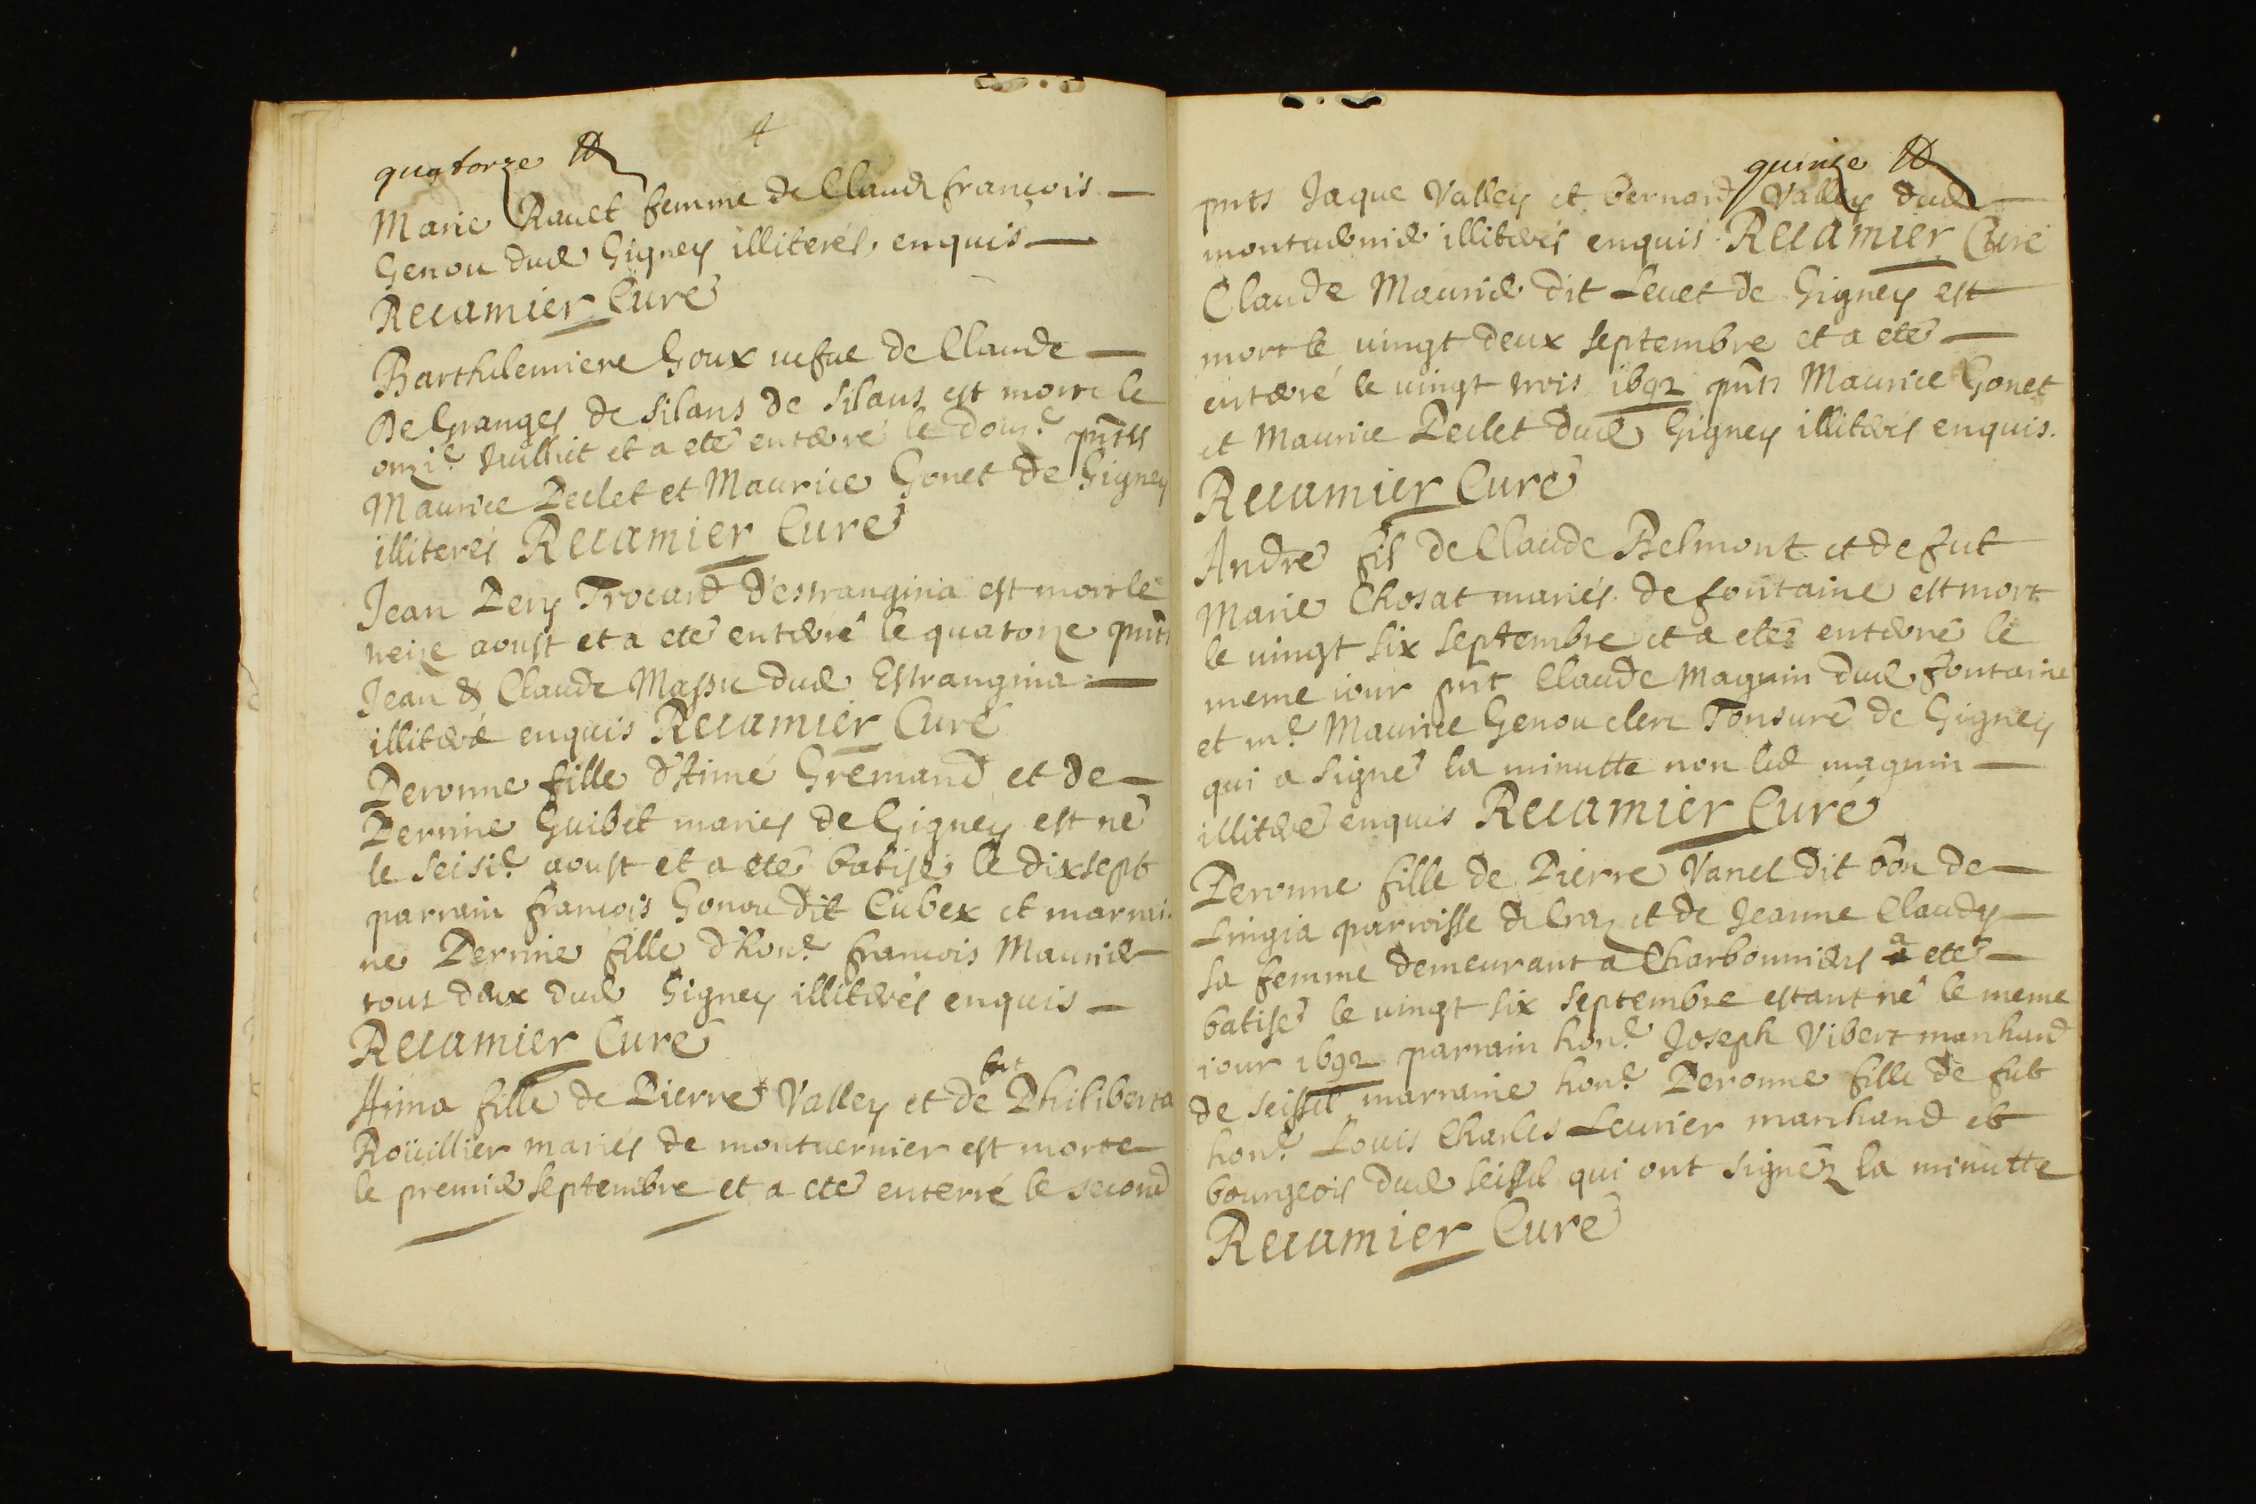 quatorze
4
Marie Rauet femme de Claude françois
Genou dud Gigney illiterés, enquis
Recamier Curé
Barthelemiere Goux uefue de Claude
De Granges de Silans de Silans est morte le
onzie Juilliet et a eté enterré le douze pnts
Maurice Peclet et Maurice Gonet de Gigney
illiterés Recamier Curé
Jean Pery Trocard d'estrangina est mort le
treize aoust et a eté enterré le quatorze pnts
Jean & Claude Massu dud Estrangina
illiteré enquis Recamier Curé
Peronne fille d'Aimé Gremand et de
Pernine Guibet mariés de Gigney est né
le seisie aoust et a eté batisé le dixsept
parrain françois Gonou dit Cubex et marrai
ne Pernine fille d'hone françois Maunier
tout deux dud Gigney illiterés enquis
Recamier Curé
fut
Anna fille de Pierre Valley et de Philiberta
Roüillier mariés de montuernier est morte
le premier septembre et a eté enterré le second
quinze
pnts Jaque Valley et bernard Valley dud
montuernier illiterés enquis Recamier Curé
Claude Maunier dit Leuet de Gigney est
mort le uingt deux septembre et a eté
enterré le uingt trois 1692 pnts Maurice Gonet
et Maurice Peclet dud Gigney illiterés enquis.
Recamier Curé
André fils de Claude Belmont et de fut
Marie Chosat mariés de fontaine est mort
le uingt six septembre et a eté enterré le
meme iour pnt Claude Magnin dud fontaine
et me Maurice Genou clerc Tonsuré de Gigney
qui a signé la minutte non led magnin
illiteré enquis Recamier Curé
Peronne fille de Pierre Vanel dit bon de
Lingia parroisse de et de Jeanne Claudy
sa femme demeurant a Charbonnieres a eté
batisé le uingt six septembre estant né le meme
iour 1692 parrain hone Joseph Vibert marchand
de seissel marraine hone Peronne fille de fut
hone Louis Charles Leurier marchand et
bourgeois dud seissel qui ont signéz la minutte
Recamier Curé